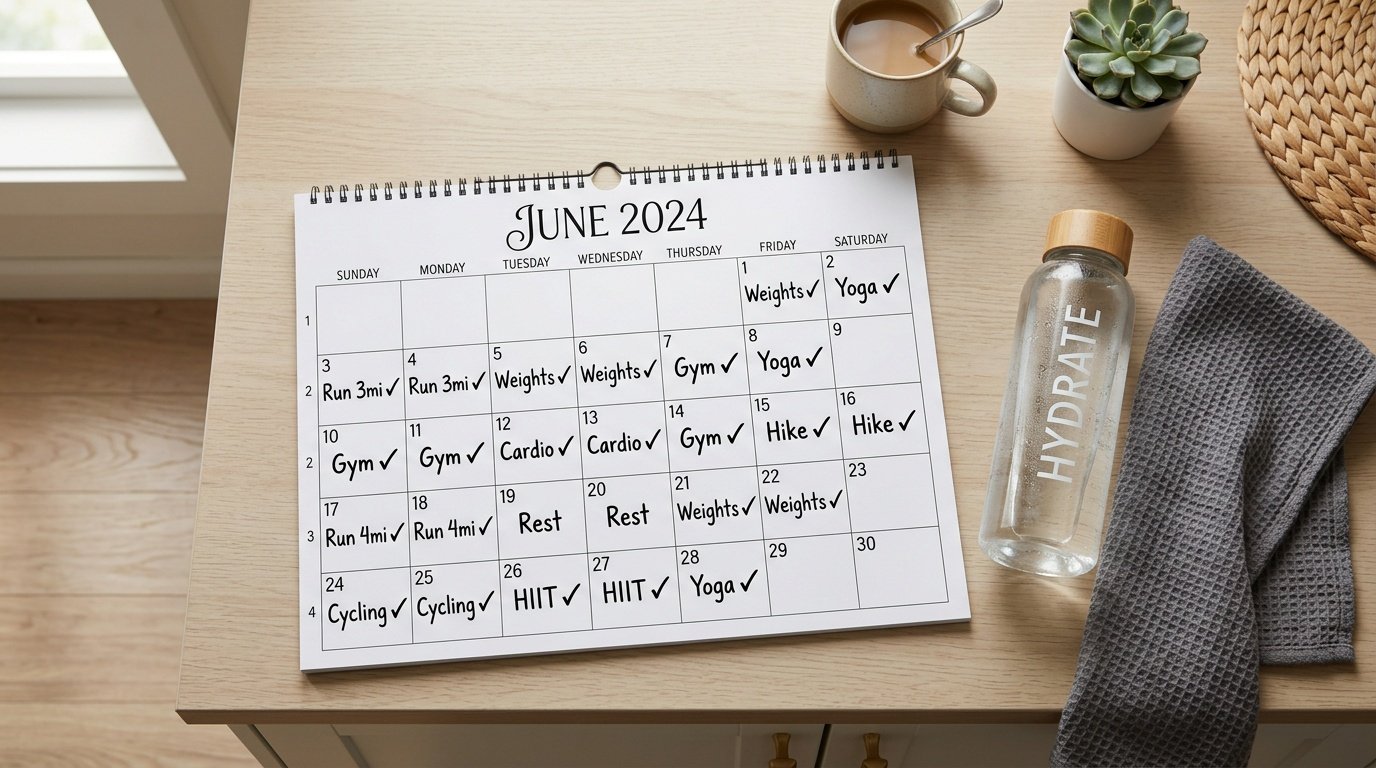 JUNE 2024
SUNDAY MONDAY TUESDAY WEDNESDAY THURSDAY FRIDAY SATURDAY
1 1 2
Weights✓ Yoga ✓
2 3 4 5 6 7 8 9
Run 3mi✓ Run 3mi✓ Weights✓ Weights✓ Gym ✓ Yoga ✓
2 10 11 12 13 14 15 16
Gym ✓ Gym ✓ Cardio✓ Cardio✓ Gym ✓ Hike ✓ Hike ✓
3 17 18 19 20 21 22 23
Run 4mi✓ Run 4mi✓ Rest Rest Weights✓ Weights✓
4 24 25 26 27 28 29 30
Cycling✓ Cycling✓ HIIT ✓ HIIT ✓ Yoga ✓
HYDRATE